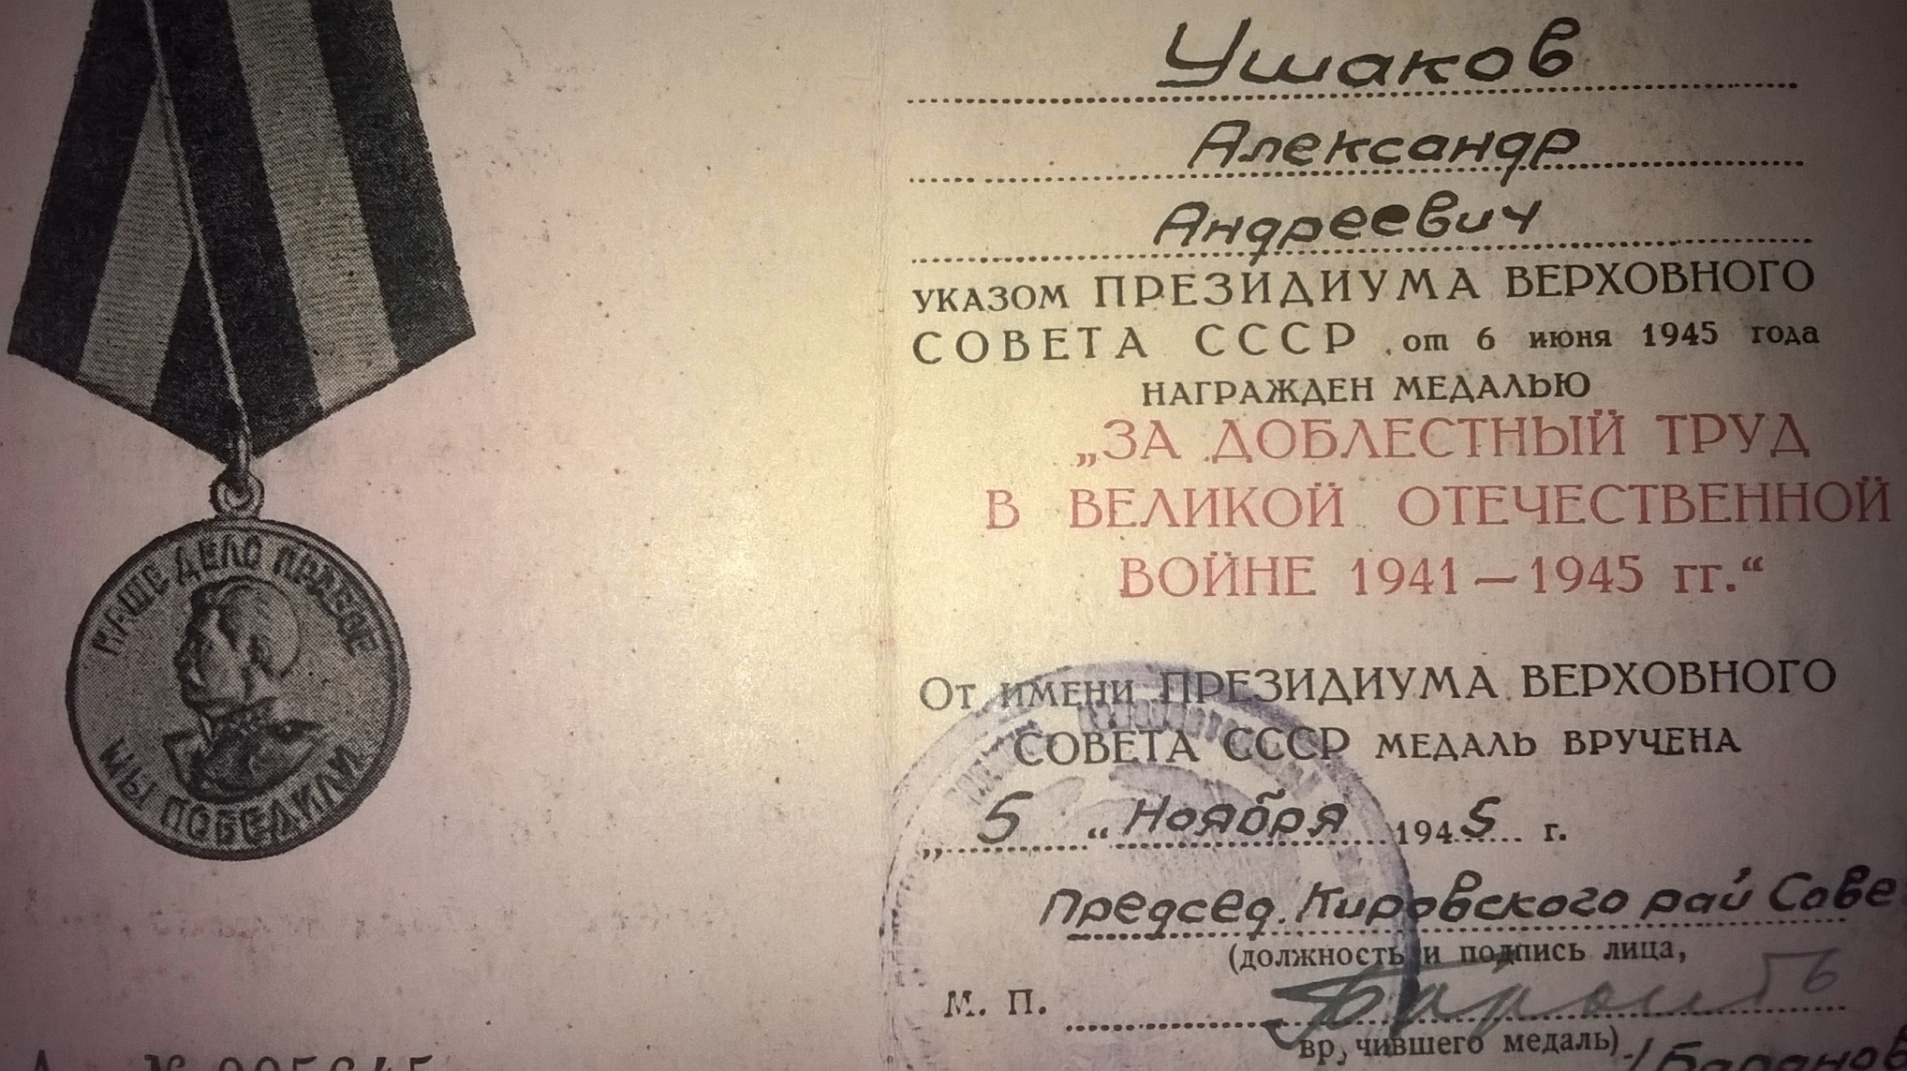 НАШЕ ДЕЛО ПРАВОЕ
МЫ ПОБЕДИЛИ
Ушаков
Александр
Андреевич
УКАЗОМ ПРЕЗИДИУМА ВЕРХОВНОГО
СОВЕТА СССР от 6 июня 1945 года
НАГРАЖДЕН МЕДАЛЬЮ
„ЗА ДОБЛЕСТНЫЙ ТРУД
В ВЕЛИКОЙ ОТЕЧЕСТВЕННОЙ
ВОЙНЕ 1941—1945 гг.“
От имени ПРЕЗИДИУМА ВЕРХОВНОГО
СОВЕТА СССР МЕДАЛЬ ВРУЧЕНА
„ 5 “ Ноября 1945 г.
Председ. Кировского рай Сове
(должность и подпись лица,
М. П.
вручившего медаль) /Баранов